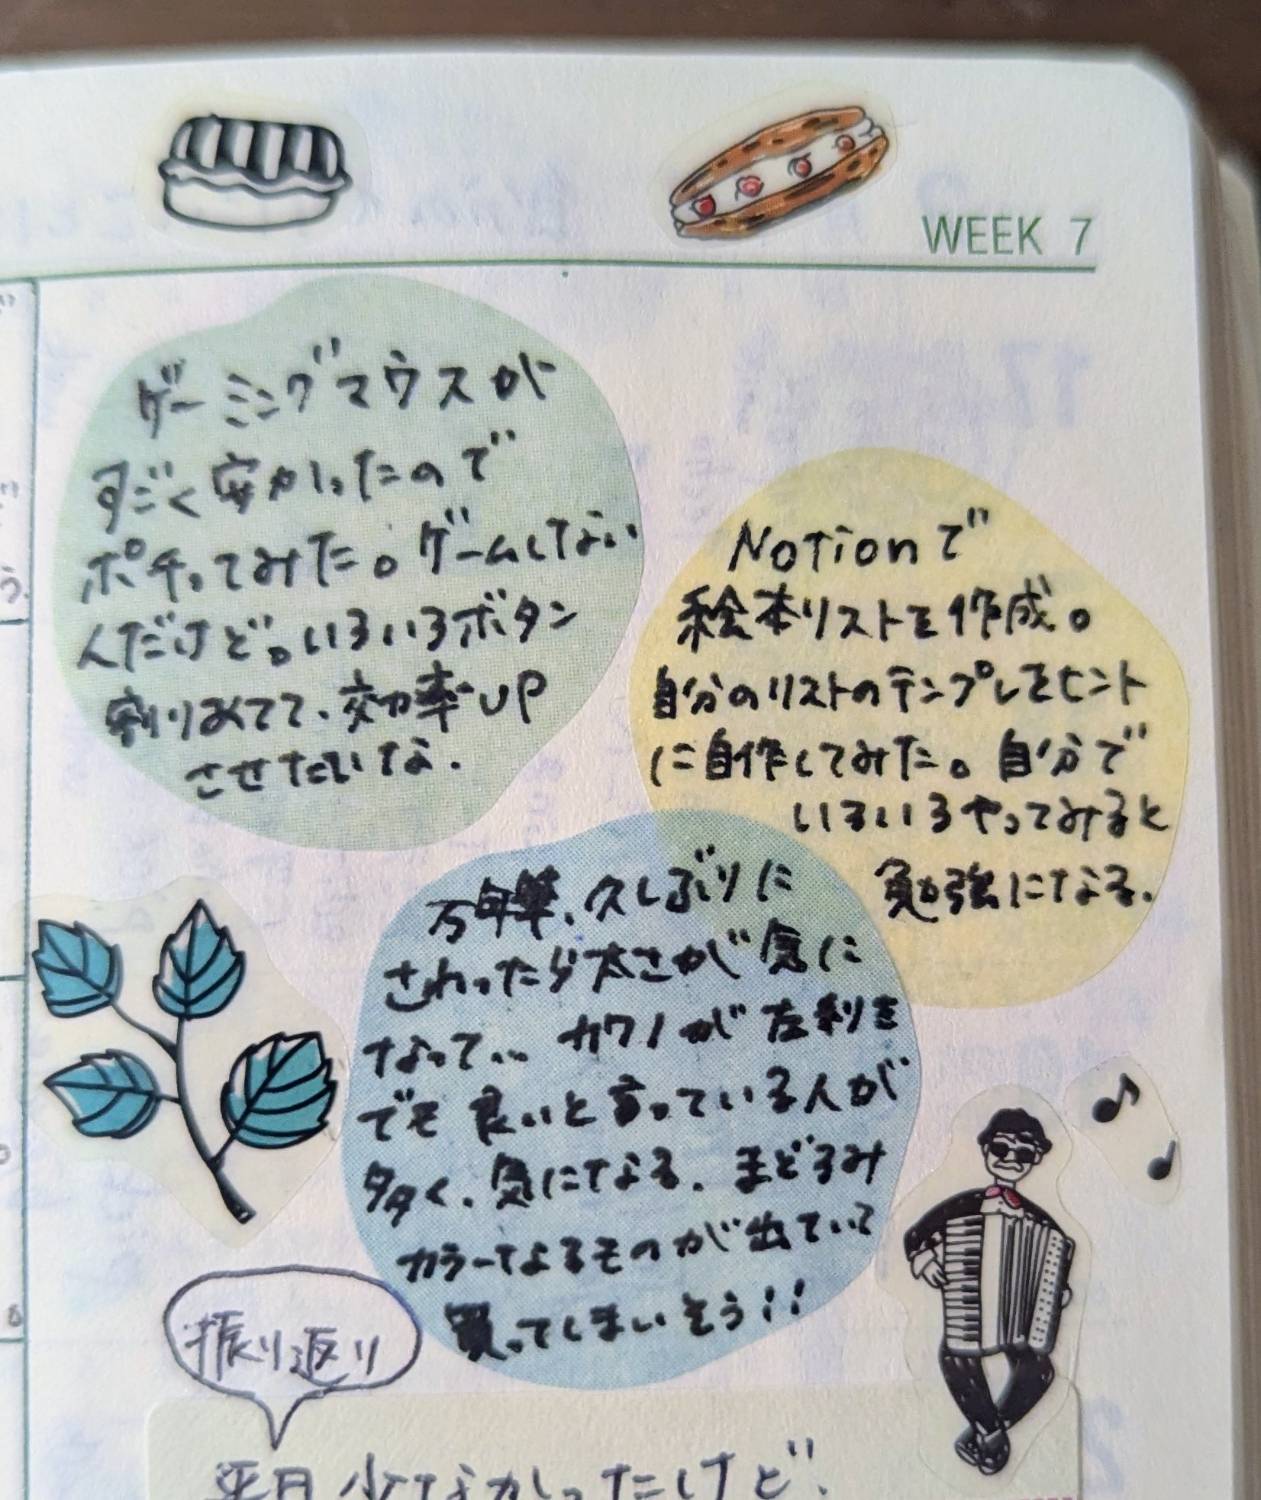 WEEK 7
ゲーミングマウスが
すごく安かったので
ポチってみた。ゲームしない
人だけど。いろいろボタン
割りあてて、効率UP
させたいな.
Notionで
絵本リストを作成。
自分のリストのテンプレをヒント
に自作してみた。自分で
いろいろやってみると
勉強になる.
万年筆、久しぶりに
さわったら太さが気に
なって… カクノが左利き
でも良いと言っている人が
多く、気になる. まどろみ
カラーなるものが出ていて
買ってしまいそう!!
振り返り
平日少なかったけど、